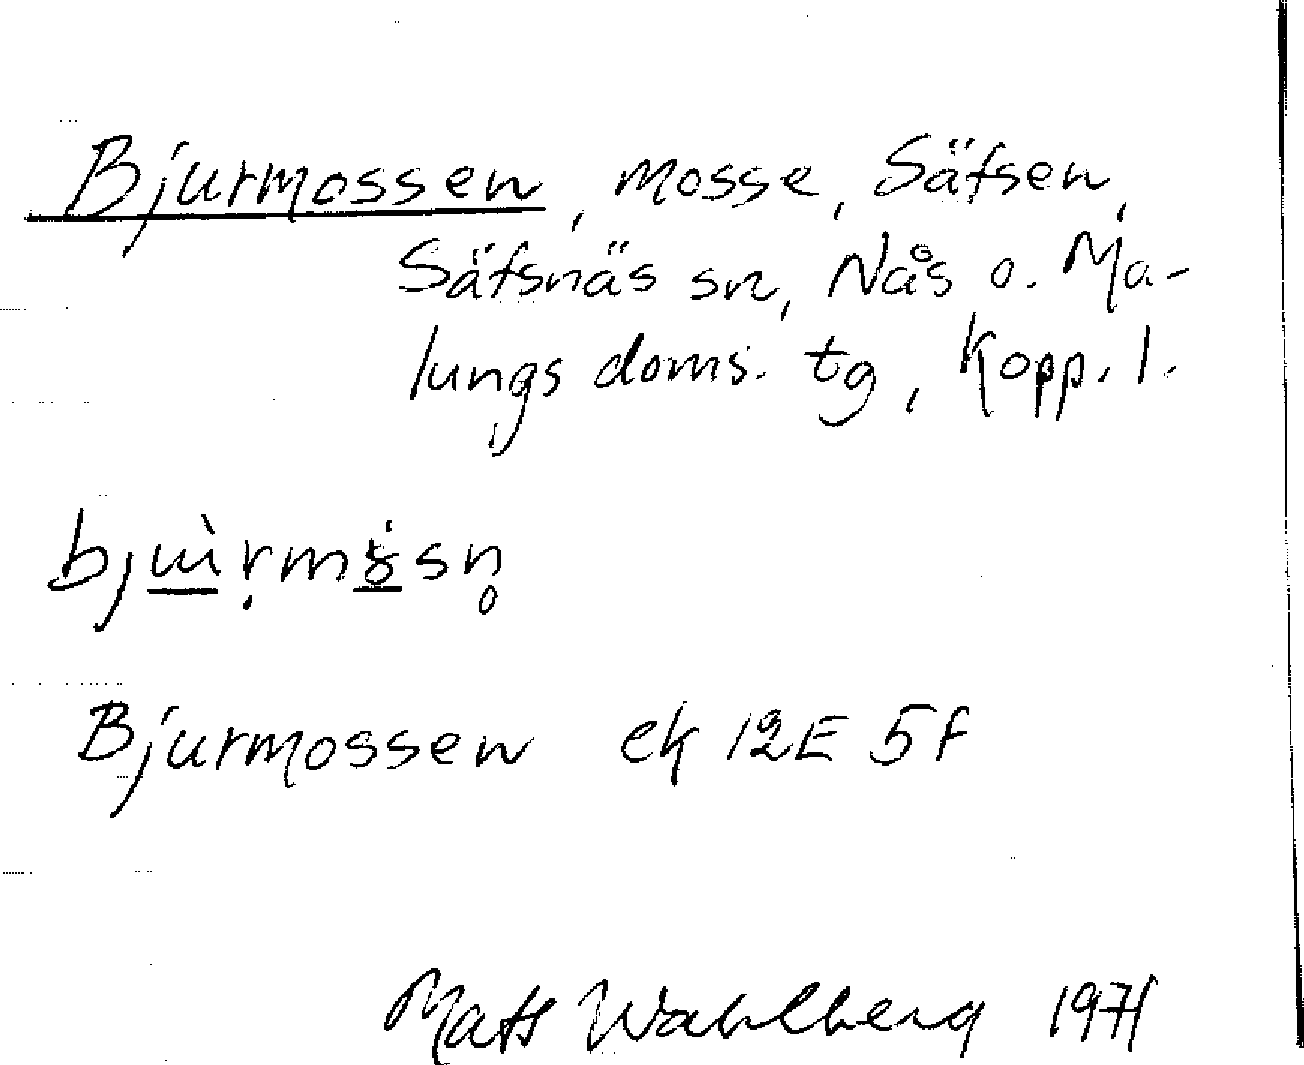 Bjurmossen, mosse, Säfsen,
Säfsnäs sn, Nås o. Ma-
lungs doms. tg, Kopp. l.
Bjurmossen ek 12E 5f
Mats Wahlberg 1971